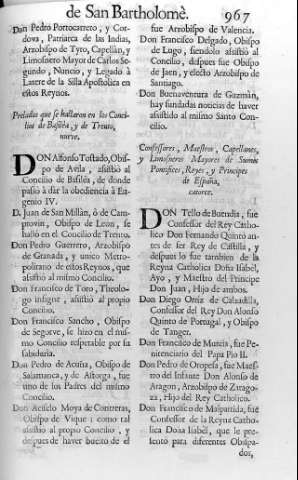 de San Bartholomè. 967
Don Pedro Portocarrero, y Cor-
dova, Patriarca de las Indias,
Arzobispo de Tyro, Capellàn, y
Limosnero Mayor de Carlos Se-
gundo, Nuncio, y Legado à
Latere de la Silla Apostolica en
estos Reynos.
Prelados que se hallaron en los Conci-
lios de Basilèa, y de Trento,
nueve.
DON Alfonso Tostado, Obis-
po de Avila, assistiò al
Concilio de Basilèa, de donde
passò à dàr la obediencia à Eu-
genio IV.
D. Juan de San Millàn, ò de Cam-
provin, Obispo de Leon, se
hallò en el Concilio de Trento.
Don Pedro Guerrero, Arzobispo
de Granada, y unico Metro-
politano de estos Reynos, que
assistiò al mismo Concilio.
Don Francisco de Toro, Theolo-
go insigne, assistiò al proprio
Concilio.
Don Francisco Sancho, Obispo
de Segorve, se hizo en el mis-
mo Concilio respetable por su
sabiduria.
Don Pedro de Acuña, Obispo de
Salamanca, y de Astorga, fue
uno de los Padres del mismo
Concilio.
Don Acisclo Moya de Contreras,
Obispo de Vique; como tal
assistiò al proprio Concilio, y
despues de haver buelto de el
fue Arzobispo de Valencia.
Don Francisco Delgado, Obispo
de Lugo, siendolo assistiò al
Concilio, despues fue Obispo
de Jaen, y electo Arzobispo de
Santiago.
Don Buenaventura de Guzmàn,
hay fundadas noticias de haver
assistido al mismo Santo Con-
cilio.
Confessores, Maestros, Capellanes,
y Limosneros Mayores de Sumos
Pontifices, Reyes, y Principes
de España,
catorce.
DON Tello de Buendia, fue
Confessor del Rey Catho-
lico Don Fernando Quinto an-
tes de ser Rey de Castilla, y
despues lo fue tambien de la
Reyna Catholica Doña Isabèl,
Ayo, y Maestro del Principe
Don Juan, Hijo de ambos.
Don Diego Ortiz de Calzadilla,
Confessor del Rey Don Alonso
Quinto de Portugal, y Obispo
de Tanger.
Don Francisco de Murcia, fue Pe-
nitenciario del Papa Pio II.
Don Pedro de Oropesa, fue Maes-
tro del Infante Don Alonso de
Aragon, Arzobispo de Zarago-
za, Hijo del Rey Catholico.
Don Francisco de Malpartida, fue
Confessor de la Reyna Catho-
lica Doña Isabèl, que le pre-
sentò para diferentes Obispa-
dos,